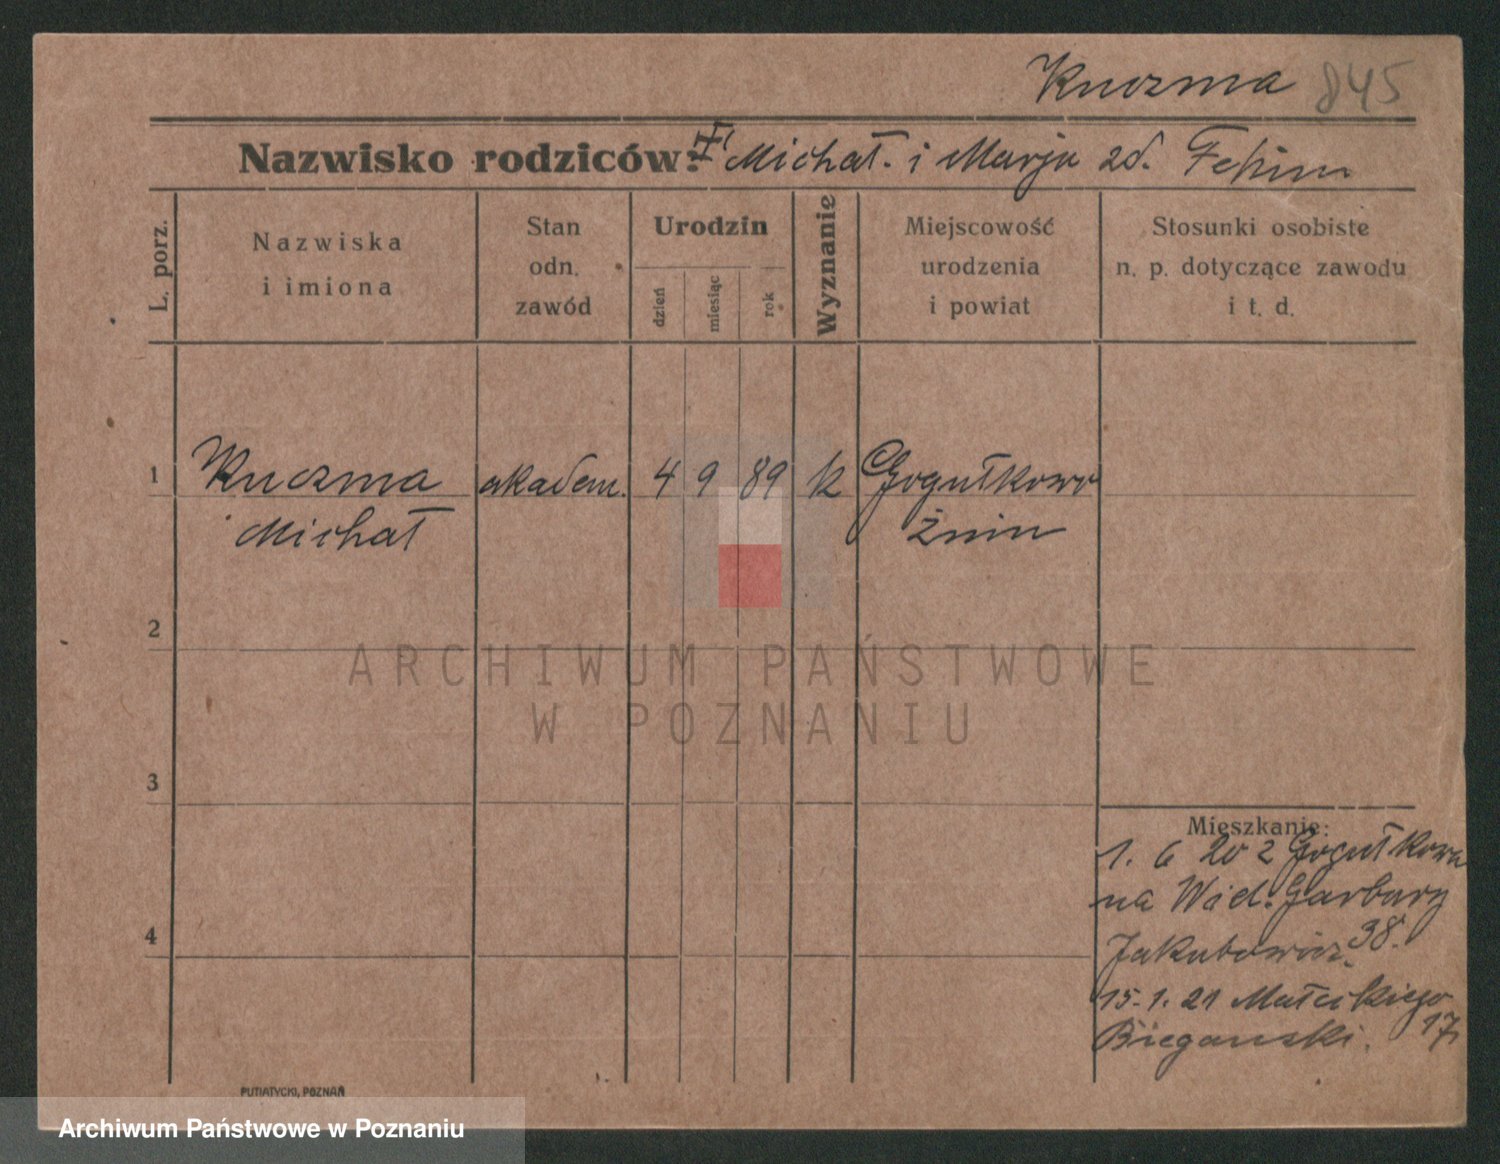 Kuczma 845
Nazwisko rodziców: Michał. i Marja zd.
L. porz.
Nazwiska
i imiona
Stan
odn.
zawód
Urodzin
dzień
miesiąc
rok
Wyznanie
Miejscowość
urodzenia
i powiat
Stosunki osobiste
n. p. dotyczące zawodu
i t. d.
1 Kuczma akadem. 4 9 89 k Gogułkowo
Michał Żnin
2
ARCHIWUM PAŃSTWOWE
W POZNANIU
3
Mieszkanie:
1. 6 20 z Gogułkowa
na Wiel. Garbary
Jakubowicz. 38.
15. 1. 21 Małeckiego
Bieganski. 17
4
PUTIATYCKI, POZNAŃ
Archiwum Państwowe w Poznaniu